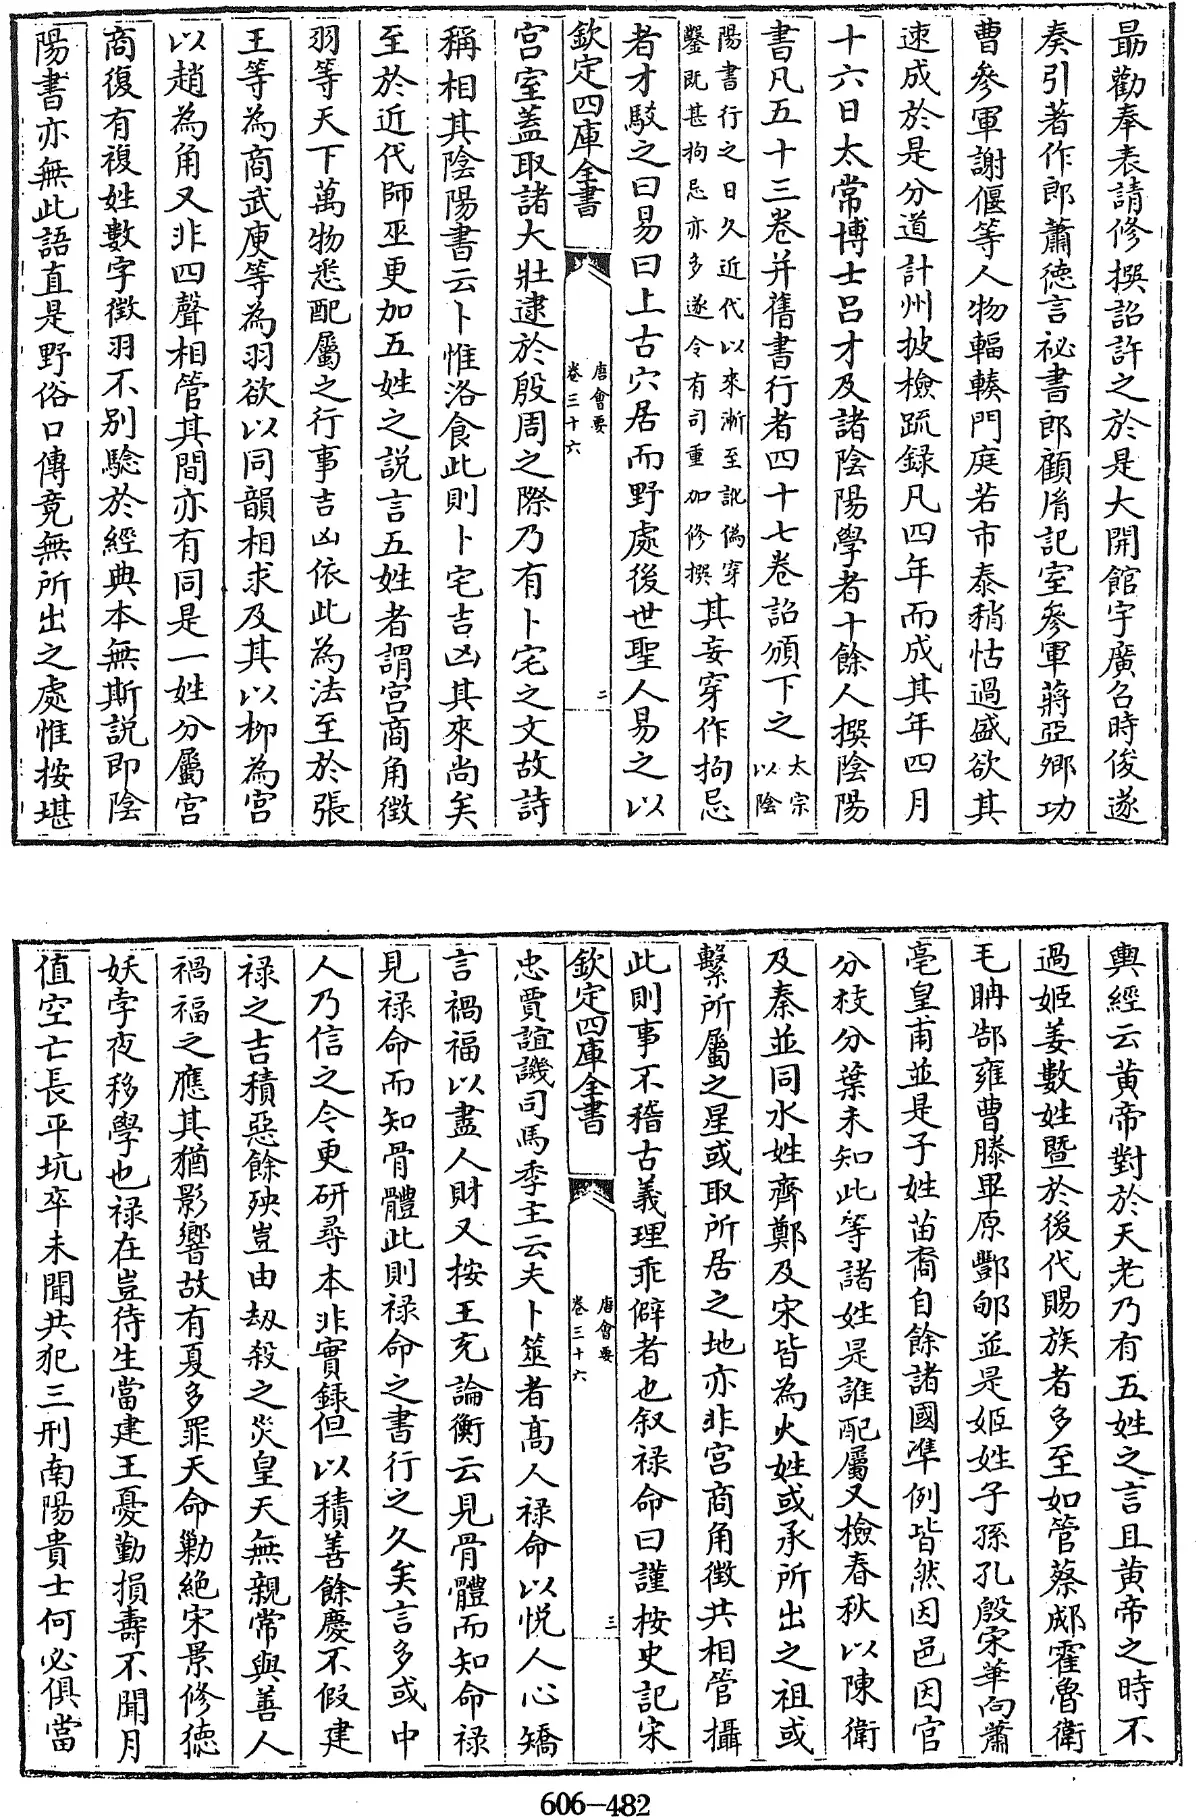 最勸奉表請修撰詔許之於是大開館宇廣召時俊遂
奏引著作郎蕭德言祕書郎顧胤記室參軍蔣亞卿功
曹參軍謝偃等人物輻輳門庭若市泰稍怙過盛欲其
速成於是分道計州披檢疏録凡四年而成其年四月
十六日太常博士呂才及諸陰陽學者十餘人撰陰陽
書凡五十三卷并舊書行者四十七卷詔頒下之太宗以陰
陽書行之日久近代以來漸至訛偽穿鑿既甚拘忌亦多遂令有司重加修撰其妄穿作拘忌
者才駁之曰易曰上古穴居而野處後世聖人易之以
欽定四庫全書 唐會要 卷三十六 二
宫室蓋取諸大壯逮於殷周之際乃有卜宅之文故詩
稱相其陰陽書云卜惟洛食此則卜宅吉凶其來尚矣
至於近代師巫更加五姓之説言五姓者謂宫商角徵
羽等天下萬物悉配屬之行事吉凶依此為法至於張
王等為商武庾等為羽欲以同韻相求及其以柳為宫
以趙為角又非四聲相管其間亦有同是一姓分屬宫
商復有複姓數字徵羽不别驗於經典本無斯説即陰
陽書亦無此語直是野俗口傳竟無所出之處惟按堪
輿經云黄帝對於天老乃有五姓之言且黄帝之時不
過姬姜數姓暨於後代賜族者多至如管蔡郕霍魯衛
毛聃郜雍曹滕畢原酆郇並是姬姓子孫孔殷宋華向蕭
亳皇甫並是子姓苗裔自餘諸國凖例皆然因邑因官
分枝分葉未知此等諸姓是誰配屬又檢春秋以陳衛
及秦並同水姓齊鄭及宋皆為火姓或承所出之祖或
繫所屬之星或取所居之地亦非宫商角徵共相管攝
此則事不稽古義理乖僻者也叙禄命曰謹按史記宋
欽定四庫全書 唐會要 卷三十六 三
忠賈誼譏司馬季主云夫卜筮者高人禄命以悦人心矯
言禍福以盡人財又按王充論衡云見骨體而知命禄
見禄命而知骨體此則禄命之書行之久矣言多或中
人乃信之今更研尋本非實録但以積善餘慶不假建
禄之吉積惡餘殃豈由劫殺之災皇天無親常與善人
禍福之應其猶影響故有夏多罪天命勦絶宋景修德
妖孛夜移學也禄在豈待生當建王憂勤損壽不聞月
值空亡長平坑卒未聞共犯三刑南陽貴士何必俱當
606-482